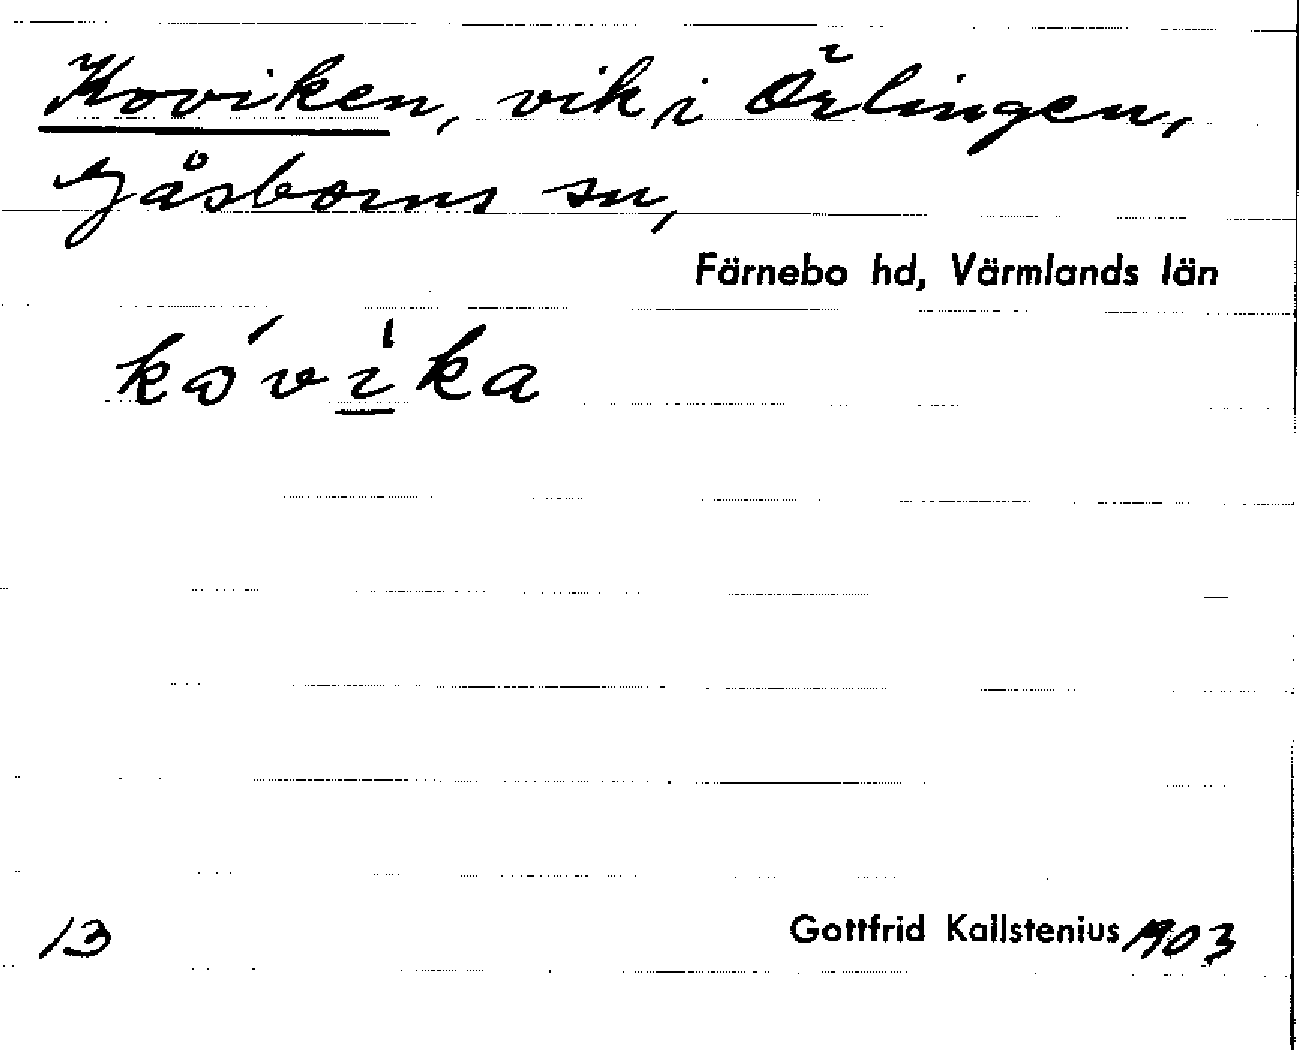 Koviken, vik i Örlingen,
Gåsborns sn,
Färnebo hd, Värmlands län
kóvìka
13
Gottfrid Kallstenius 1903